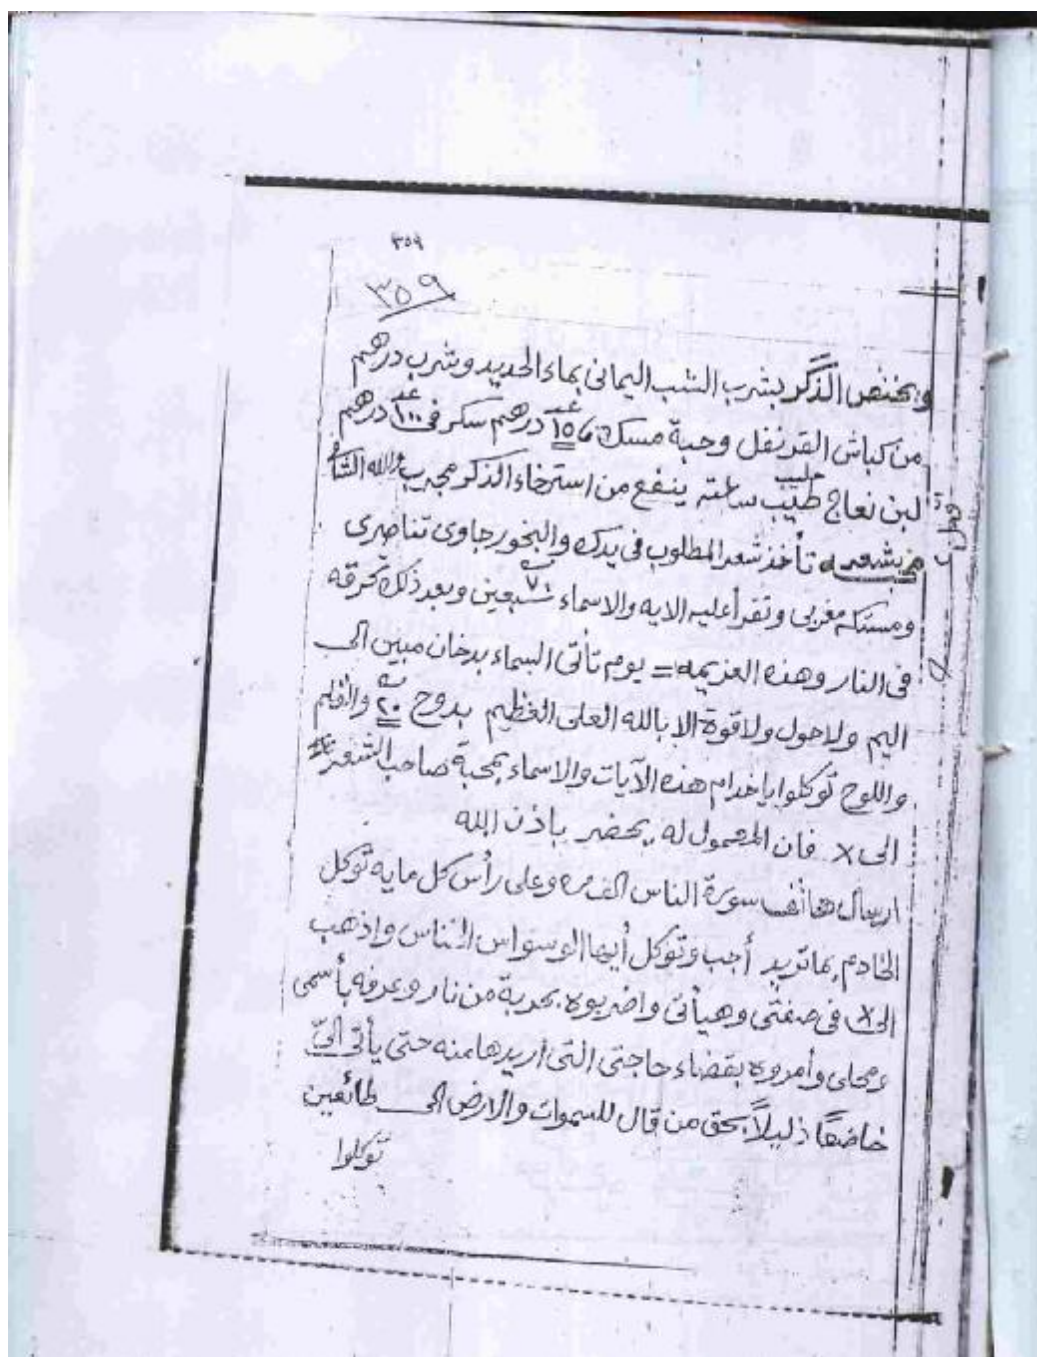 ٣٥٩
٣٥٩
ويختص الذكر بشرب الشب اليمانى بماء الحديد وشرب درهم
من كباش القرنفل وحبة مسك ١٥ درهم سكر فى ١٠٠ درهم
حليب
لبن نعاج طيب ساعته ينفع من استرخاء الذكر مجرب والله
تأخذ شعر المطلوب فى يدك والبخور جاوى تناصرى
ومستكه مغربى وتقرأ عليه الايه والاسماء ٧٠ سبعين وبعد ذلك تحرقه
فى النار وهذه العزيمه = يوم تأتى السماء بدخان مبين الى
اليم ولا حول ولا قوة الا بالله العلى العظيم بدوح ٢٠ والقلم
واللوح توكلوا ياخدام هذه الآيات والاسماء بمحبة صاحب الشعر
الى X فان المعمول له يحضر باذن الله
ارسال هاتف سورة الناس الف مره وعلى رأس كل مايه توكل
الخادم بما تريد أجب وتوكل أيها الوسواس الخناس واذهب
الى X فى صفتى وهيأتى واضربوه بحربة من نار وعرفه بأسمى
ومحلى وأمروه بقضاء حاجتى التى أريدها منه حتى يأتى الىّ
خاضعاً ذليلاً بحق من قال للسموات والارض الى طائعين
توكلوا